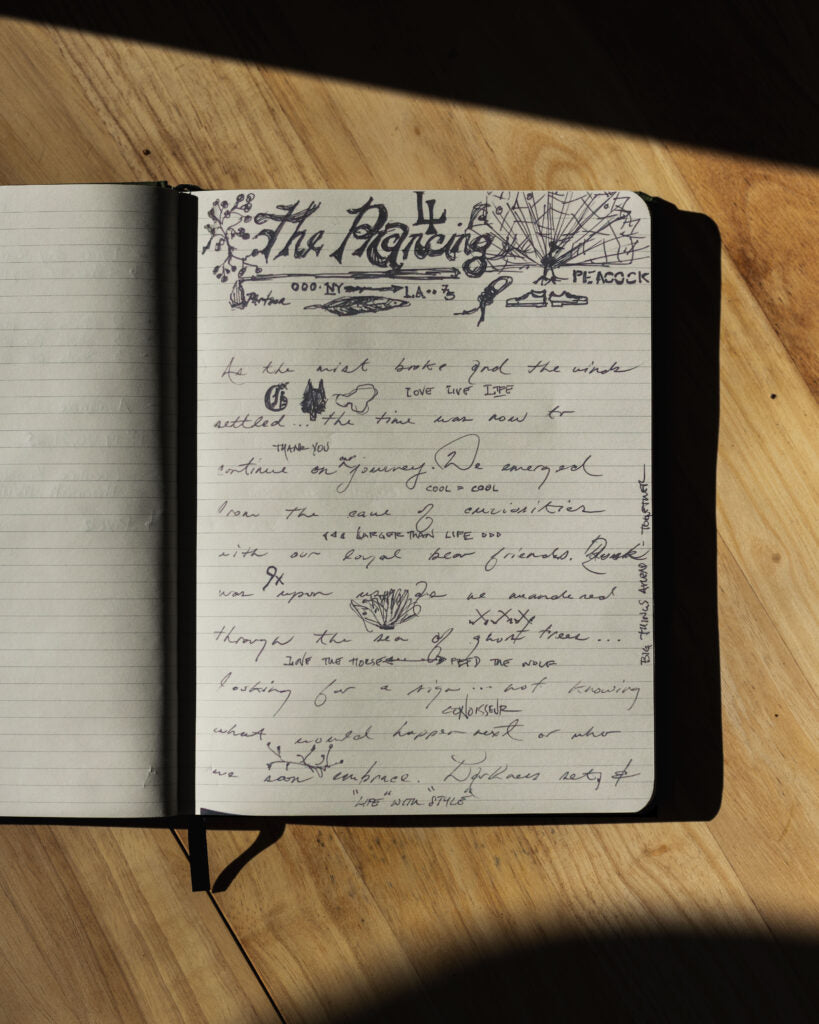 LL
The Prancing
PEACOCK
NY LA
As the mist broke and the winds
LOVE LIVE LIFE
settled... the time was now to
THANK YOU
continue on our journey. We emerged
COOL = COOL
from the cave of curiosities
LARGER THAN LIFE
with our loyal bear friends. Dusk
was upon us as we meandered
through the sea of ghost trees...
THE HORSE FEED THE WOLF
looking for a sign... not knowing
CONOISSEUR
what would happen next or who
we soon embrace. Darkness sets &
"LIFE" WITH "STYLE"
BIG THINGS AHEAD - TOGETHER